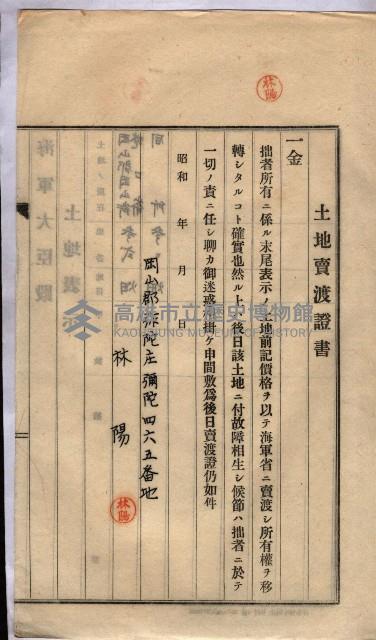 土地賣渡證書
一金
拙者所有ニ係ル末尾表示ノ土地前記價格ヲ以テ海軍省ニ賣渡シ所有權ヲ移
轉シタルコト確實也然ル上ハ後日該土地ニ付故障相生シ候節ハ拙者ニ於テ
一切ノ責ニ任シ聊カ御迷惑相掛ケ申間敷爲後日賣渡證仍如件
昭和 年 月 日
岡山郡弥陀庄彌陀四六五番地
林陽
林陽
林陽
土地表示
海軍大臣殿
高雄市立歷史博物館
KAOHSIUNG MUSEUM OF HISTORY